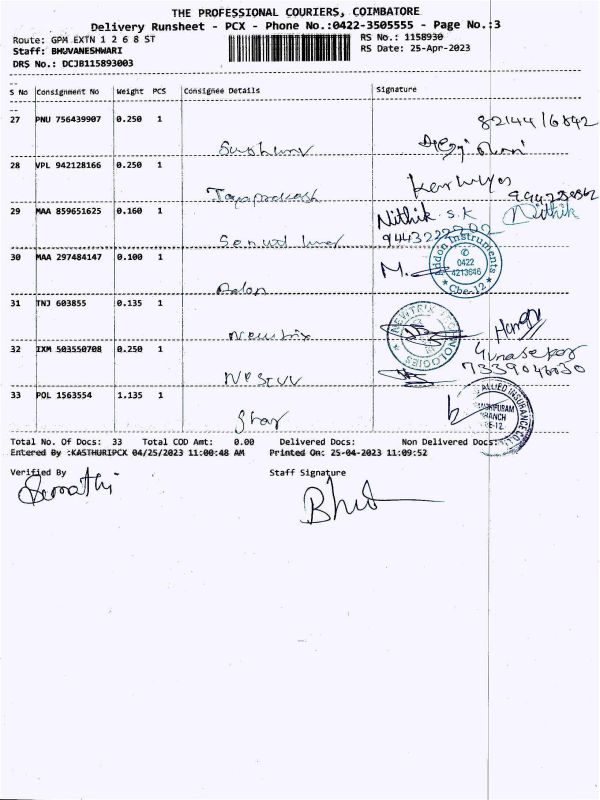 THE PROFESSIONAL COURIERS, COIMBATORE
Delivery Runsheet - PCX - Phone No.:0422-3505555 - Page No.:3
Route: GPM EXTN 1 2 6 8 ST
RS No.: 1158930
Staff: BHUVANESHWARI
RS Date: 25-Apr-2023
DRS No.: DCJB115893003
S No Consignment No Weight PCS Consignee Details Signature
27 PNU 756439907 0.250 1
28 VPL 942128166 0.250 1
Jayaprakash
29 MAA 859651625 0.160 1 Nithik S.K Nithik
30 MAA 297484147 0.100 1
Addon Instruments
0422
4213646
Cbe-12
M.
31 TNJ 603855 0.135 1
NEWTRIX TECHNOLOGIES
Newtrix
32 IXM 503550708 0.250 1 Gunasekar
7339046030
33 POL 1563554 1.135 1
Star
Total No. Of Docs: 33 Total COD Amt: 0.00 Delivered Docs: Non Delivered Docs:
Entered By :KASTHURIPCX 04/25/2023 11:00:48 AM Printed On: 25-04-2023 11:09:52
Verified By Staff Signature